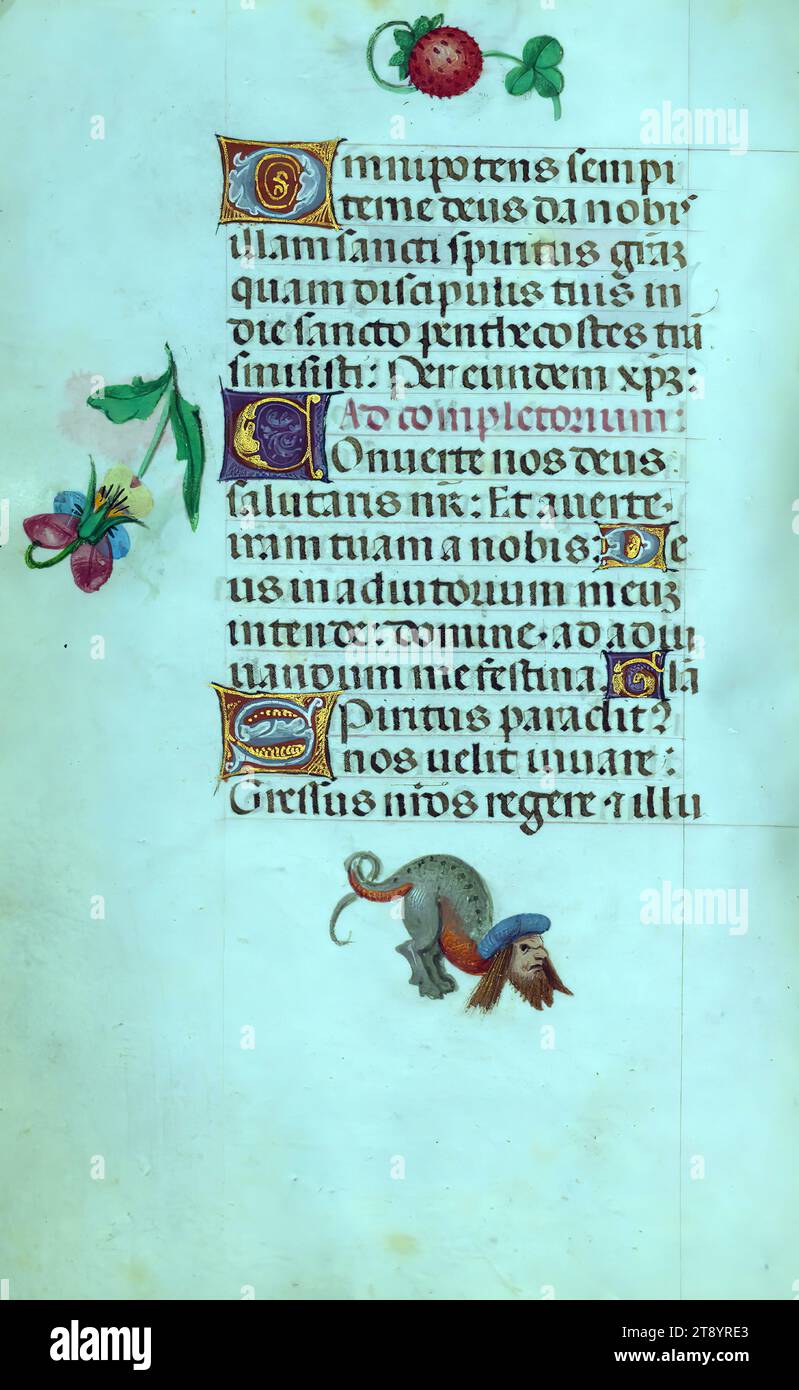 Omnipotens sempi
terne deus da nobis
illam sancti spiritus grãz
quam discipulis tuis in
die sancto penthecostes trã
smisisti: Per eundem xp̃z:
Ad completorium:
Conuerte nos deus
salutaris nr̃: Et auerte
iram tuam a nobis: De
us in adiutorium meuz
intende: domine ad adiu
uandum me festina. Glã
Spiritus paraclit9
nos uelit iuuare:
Gressus nr̃os regere ⁊ illu
alamy
Image ID: 2T8YRE3
www.alamy.com